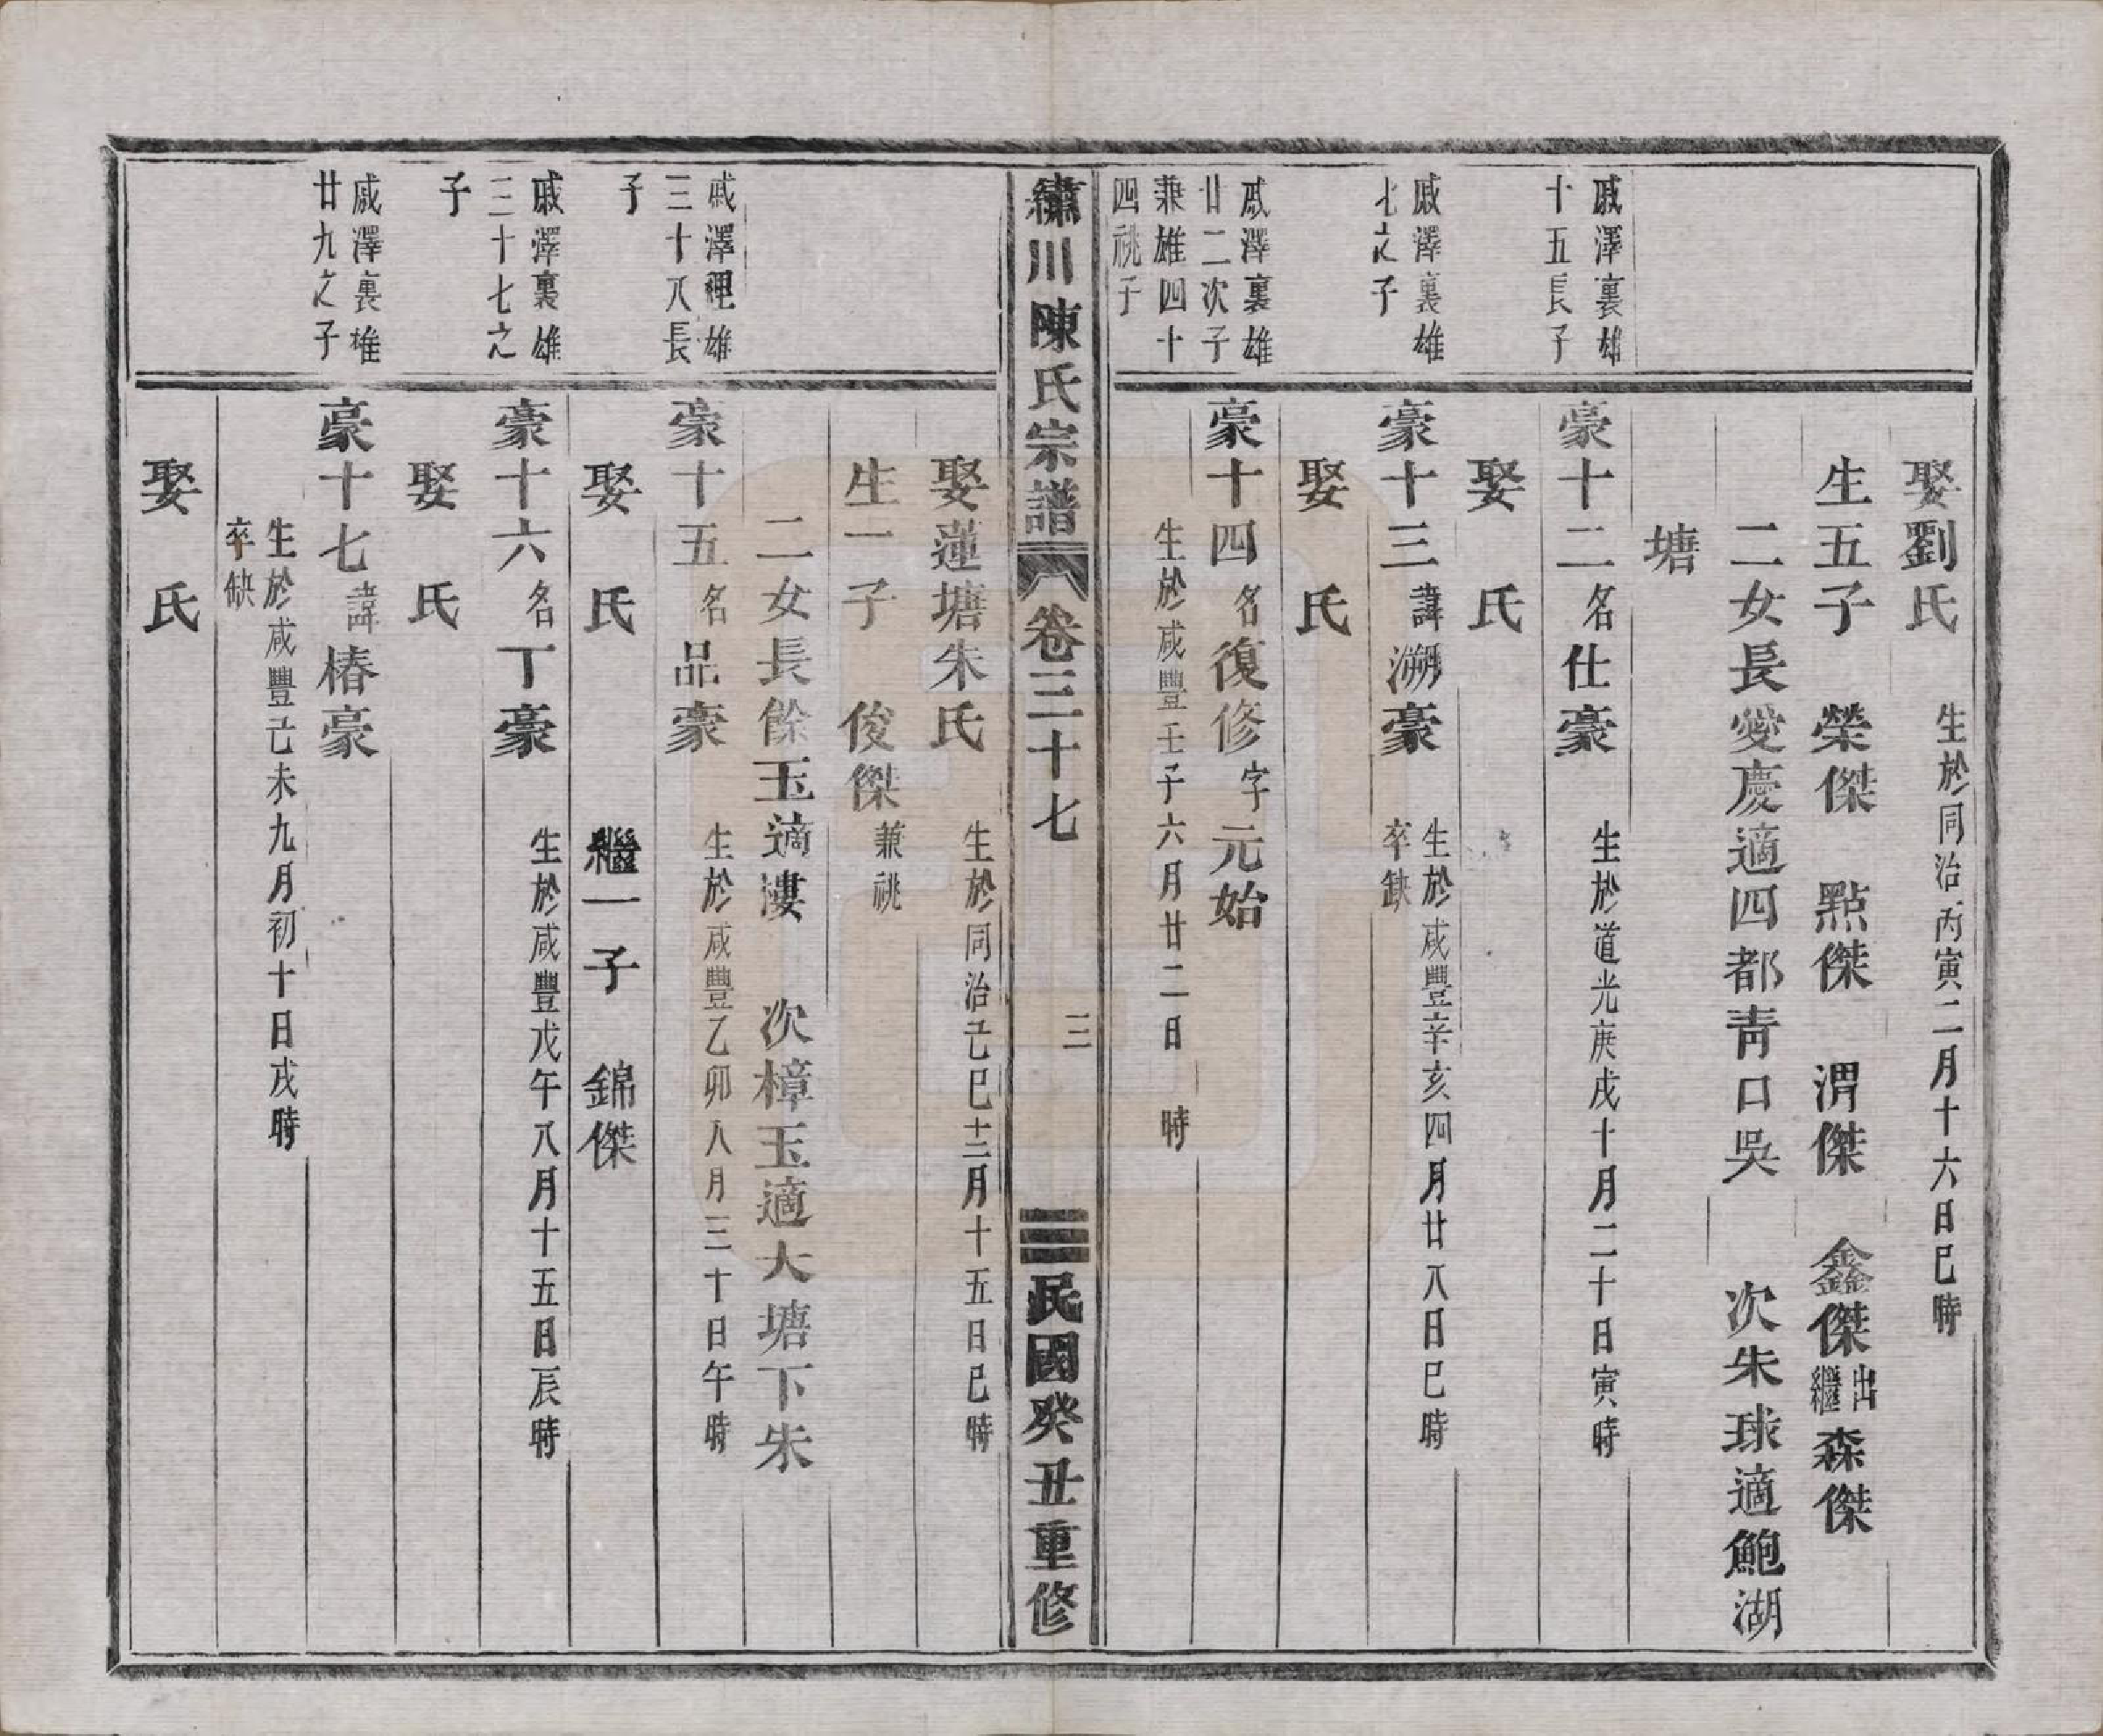 娶劉氏 生於同治丙寅二月十六日巳時
生五子 榮傑 點傑 渭傑 鑫傑出繼 森傑
二女長愛慶適四都靑口吳 次朱球適鮑湖
塘
戚澤裏雄
十五長子
豪十二名仕豪 生於道光庚戌十月二十日寅時
娶 氏
戚澤裏雄
七之子
豪十三諱溯豪 生於咸豐辛亥四月廿八日巳時
卒缺
娶 氏
戚澤裏雄
廿二次子
兼雄四十
四祧子
豪十四名復修字元始
生於咸豐壬子六月廿二日 時
繡川陳氏宗譜 卷三十七 三 民國癸丑重修
娶蓮塘朱氏 生於同治己巳十二月十五日巳時
生一子 俊傑兼祧
二女長餘玉適塘 次樟玉適大塘下朱
戚澤裡雄
三十八長
子
豪十五名品豪 生於咸豐乙卯八月三十日午時
娶 氏 繼一子 錦傑
戚澤裏雄
三十七之
子
豪十六名丁豪 生於咸豐戊午八月十五日辰時
娶 氏
戚澤裏雄
廿九之子
豪十七諱椿豪
生於咸豐己未九月初十日戌時
卒缺
娶 氏